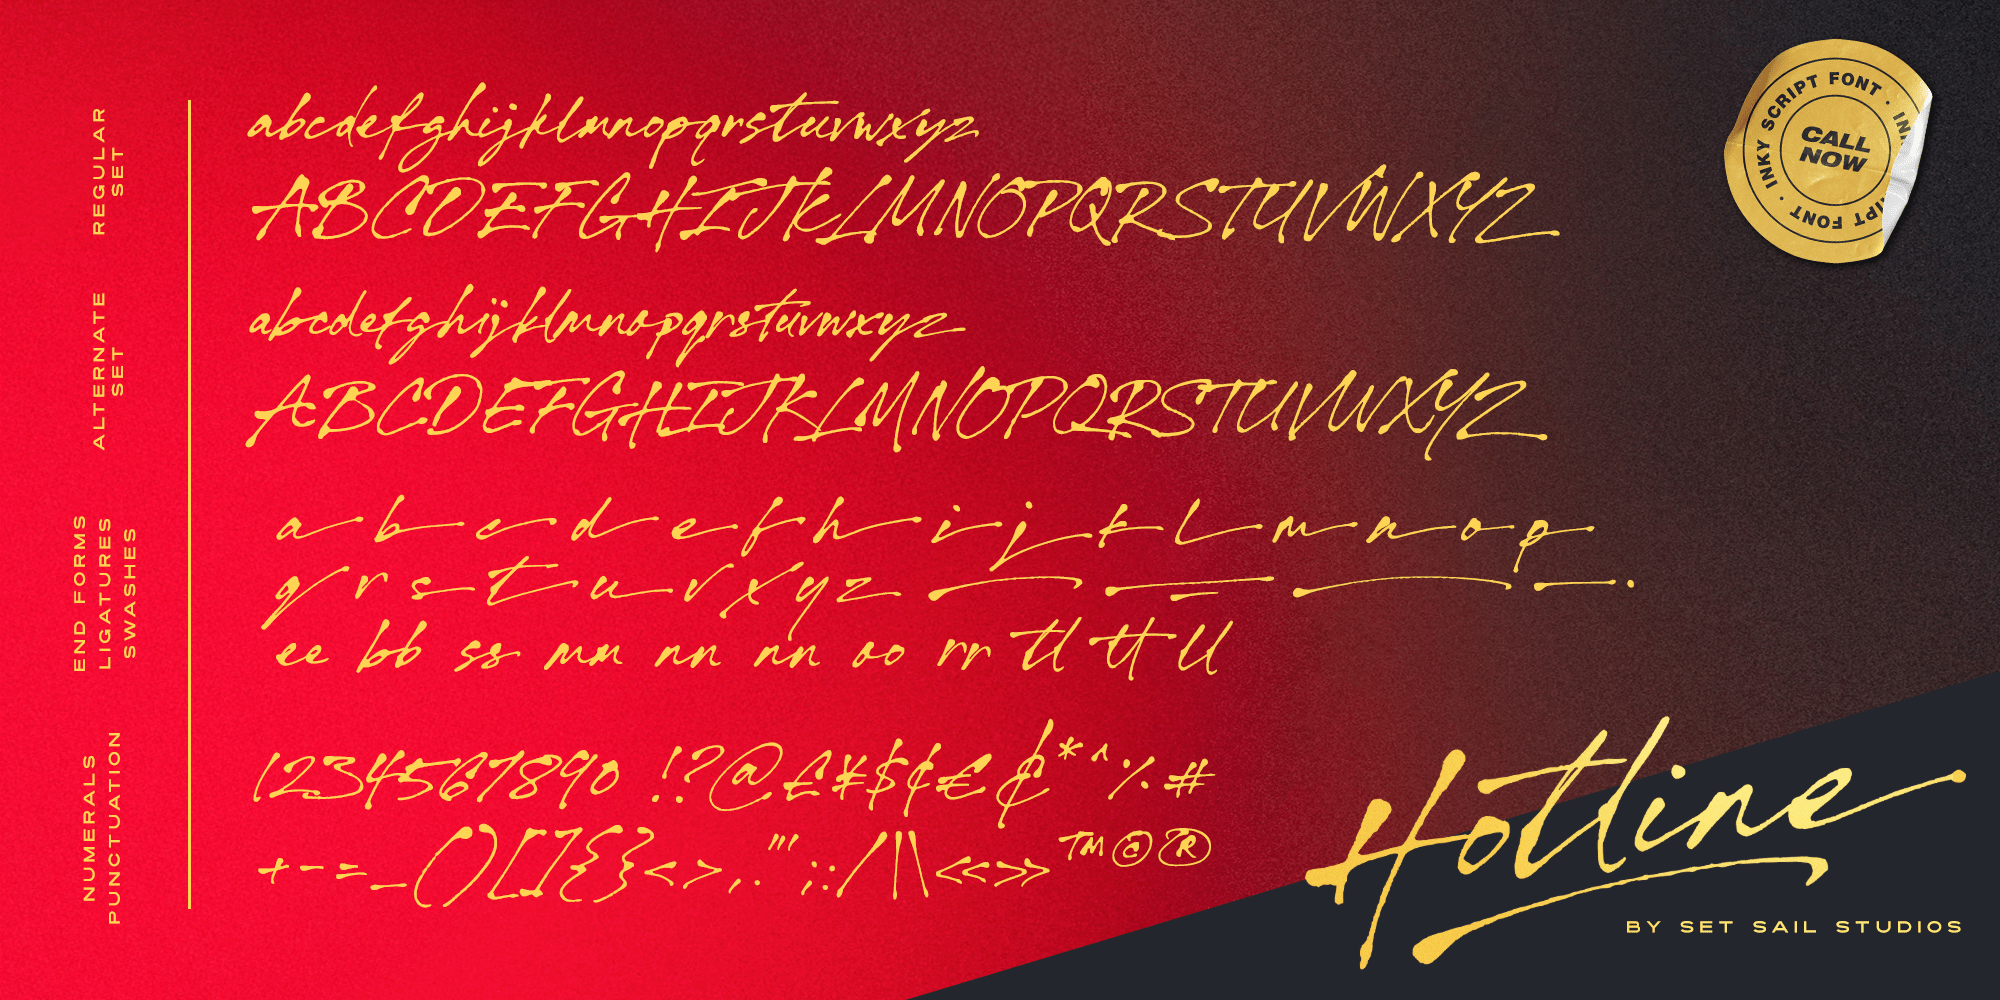 REGULAR
SET
abcdefghijklmnopqrstuvwxyz
ABCDEFGHIJKLMNOPQRSTUVWXYZ
ALTERNATE
SET
abcdefghijklmnopqrstuvwxyz
ABCDEFGHIJKLMNOPQRSTUVWXYZ
END FORMS
LIGATURES
SWASHES
a b c d e f h i j k l m n o p
q r s t u v x y z
ee bb ss mm nn nn oo rr tl tt ll
NUMERALS
PUNCTUATION
1234567890 !?@£¥$¢€ *^%#
+-=_()[]{}<>,. "' ;:/|\«»™©®
INKY SCRIPT FONT ·
IPT FONT ·
CALL
NOW
Hotline
BY SET SAIL STUDIOS